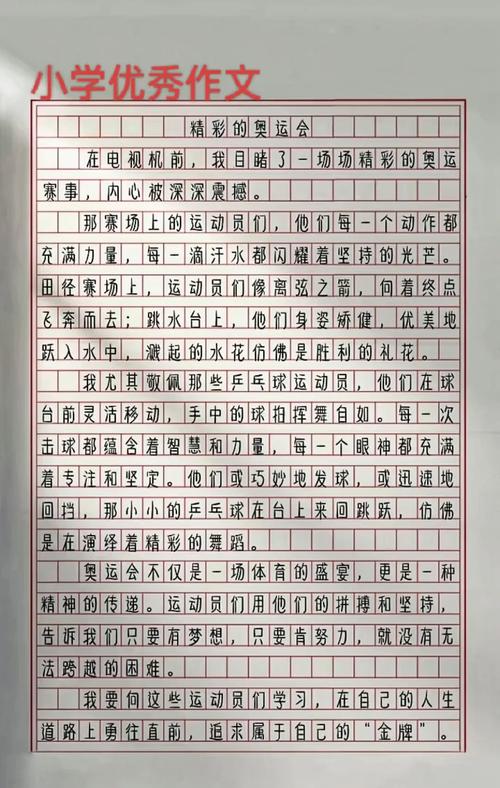 小学优秀作文
精彩的奥运会
在电视机前，我目睹了一场场精彩的奥运
赛事，内心被深深震撼。
那赛场上的运动员们，他们每一个动作都
充满力量，每一滴汗水都闪耀着坚持的光芒。
田径赛场上，运动员们像离弦之箭，向着终点
飞奔而去；跳水台上，他们身姿矫健，优美地
跃入水中，溅起的水花仿佛是胜利的礼花。
我尤其敬佩那些乒乓球运动员，他们在球
台前灵活移动，手中的球拍挥舞自如。每一次
击球都蕴含着智慧和力量，每一个眼神都充满
着专注和坚定。他们或巧妙地发球，或迅速地
回挡，那小小的乒乓球在台上来回跳跃，仿佛
是在演绎着精彩的舞蹈。
奥运会不仅是一场体育的盛宴，更是一种
精神的传递。运动员们用他们的拼搏和坚持，
告诉我们只要有梦想，只要肯努力，就没有无
法跨越的困难。
我要向这些运动员们学习，在自己的人生
道路上勇往直前，追求属于自己的“金牌”。